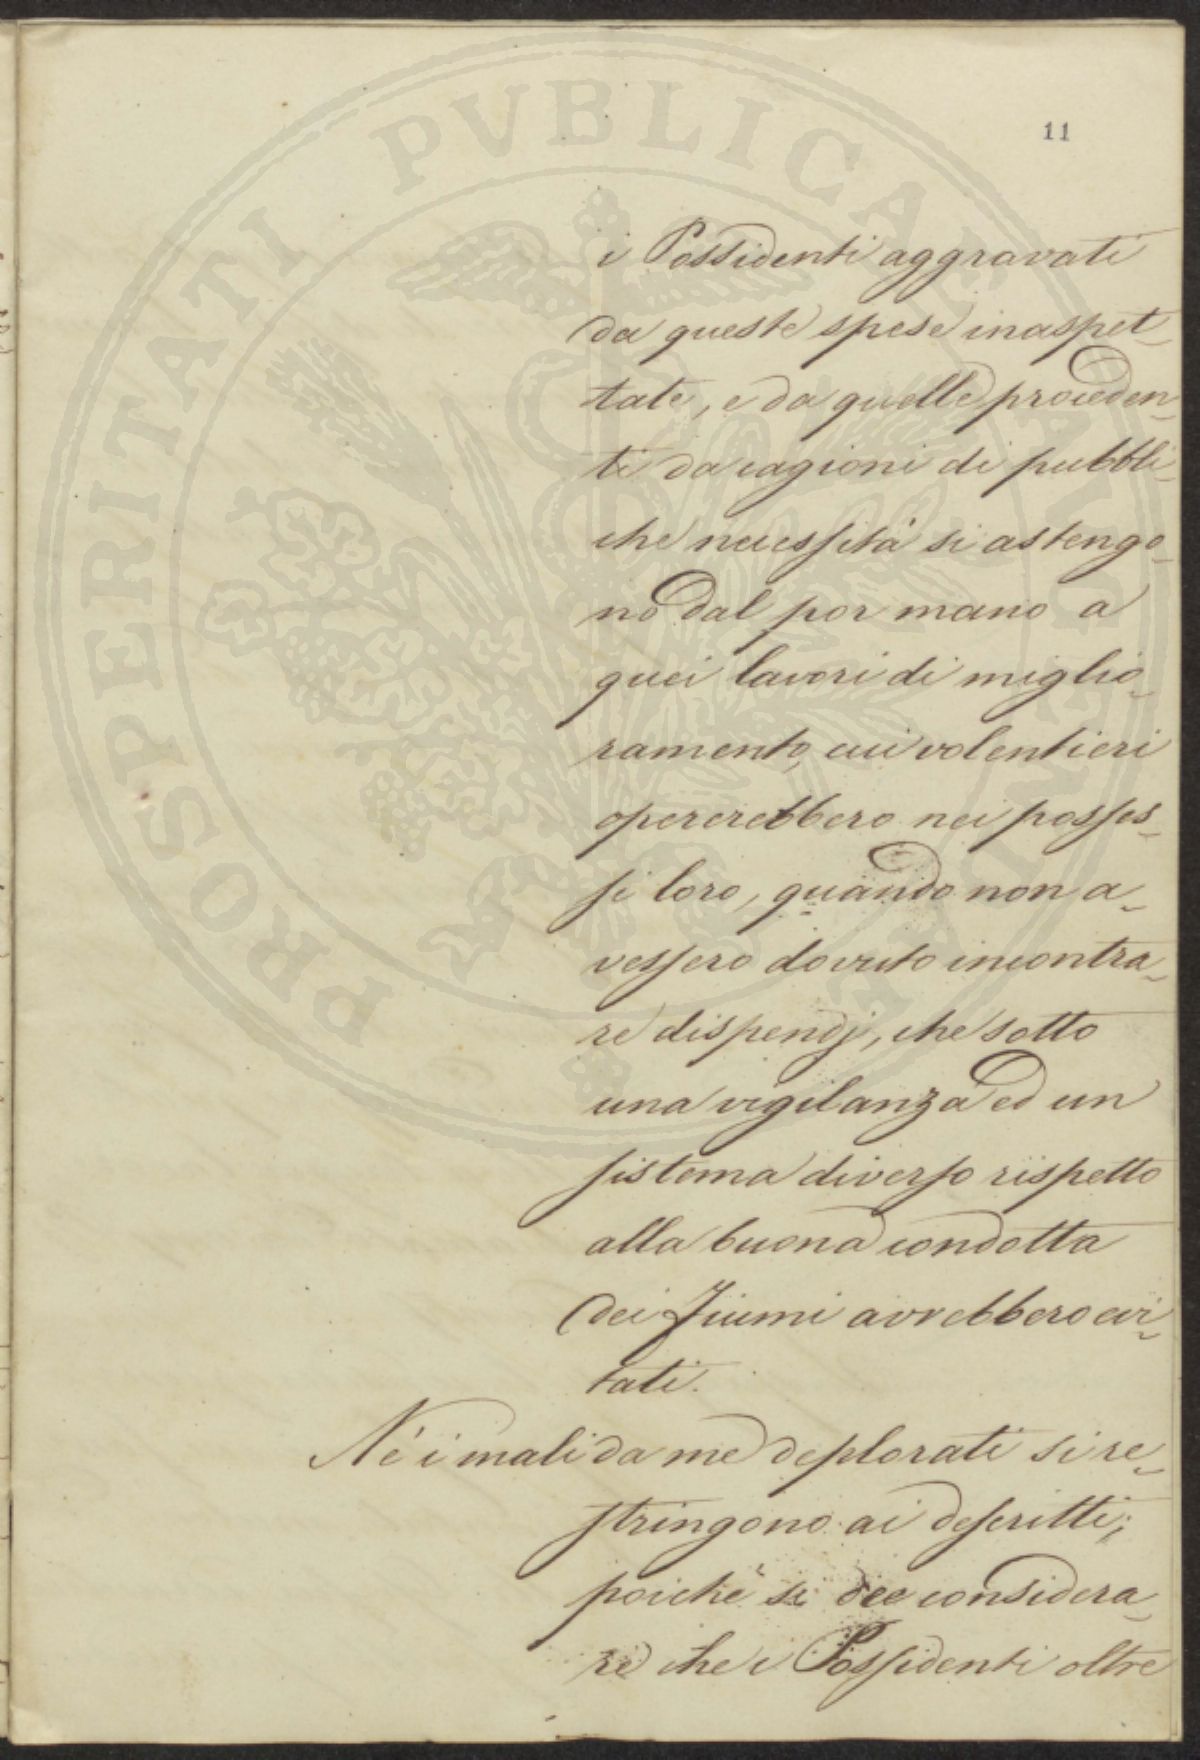 PROSPERITATI PVBLICAE AVGENDAE
11
i Possidenti aggravati
da queste spese inaspet-
tate, e da quelle proceden-
ti da cagioni di pubbli-
che necessità si astengo-
no dal por mano a
quei lavori di miglio-
ramento, cui volentieri
opererebbero nei posses-
si loro, quando non a-
vessero dovuto incontra-
re dispendj, che sotto
una vigilanza ed un
sistema diverso rispetto
alla buona condotta
dei Fiumi avrebbero evi-
tati.
Nè i mali da me deplorati si re-
stringono ai descritti;
poichè si dee considera-
re che i Possidenti oltre